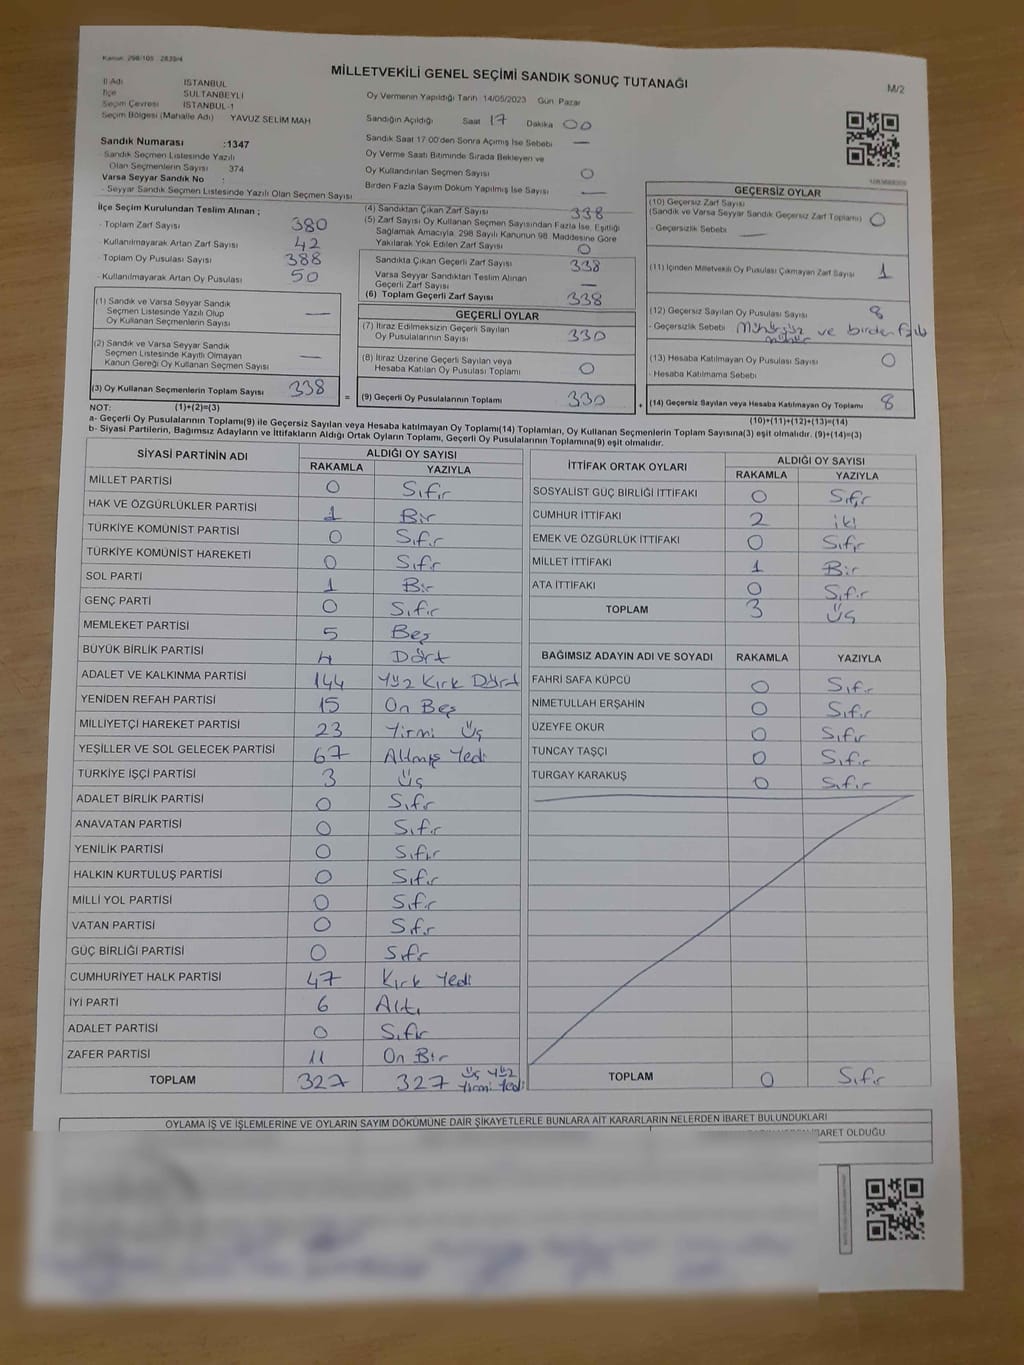 Kanun: 298/105 2839/4
MİLLETVEKİLİ GENEL SEÇİMİ SANDIK SONUÇ TUTANAĞI
M/2
İl Adı İSTANBUL
İlçe SULTANBEYLİ
Seçim Çevresi İSTANBUL-1
Seçim Bölgesi (Mahalle Adı) YAVUZ SELİM MAH
Oy Vermenin Yapıldığı Tarih 14/05/2023 Gün Pazar
Sandığın Açıldığı Saat 17 Dakika 00
Sandık Saat 17:00'den Sonra Açımış İse Sebebi —
Oy Verme Saati Bitiminde Sırada Bekleyen ve
Oy Kullandırılan Seçmen Sayısı 0
Birden Fazla Sayım Döküm Yapılmış İse Sayısı —
Sandık Numarası :1347
- Sandık Seçmen Listesinde Yazılı
Olan Seçmenlerin Sayısı 374
Varsa Seyyar Sandık No :
- Seyyar Sandık Seçmen Listesinde Yazılı Olan Seçmen Sayısı
İlçe Seçim Kurulundan Teslim Alınan ;
- Toplam Zarf Sayısı 380
- Kullanılmayarak Artan Zarf Sayısı 42
- Toplam Oy Pusulası Sayısı 388
- Kullanılmayarak Artan Oy Pusulası 50
(1) Sandık ve Varsa Seyyar Sandık
Seçmen Listesinde Yazılı Olup
Oy Kullanan Seçmenlerin Sayısı —
(2) Sandık ve Varsa Seyyar Sandık
Seçmen Listesinde Kayıtlı Olmayan
Kanun Gereği Oy Kullanan Seçmen Sayısı —
(3) Oy Kullanan Seçmenlerin Toplam Sayısı 338 =
(4) Sandıktan Çıkan Zarf Sayısı 338
(5) Zarf Sayısı Oy Kullanan Seçmen Sayısından Fazla İse, Eşitliği
Sağlamak Amacıyla, 298 Sayılı Kanunun 98. Maddesine Göre
Yakılarak Yok Edilen Zarf Sayısı 0
Sandıkta Çıkan Geçerli Zarf Sayısı 338
Varsa Seyyar Sandıktan Teslim Alınan
Geçerli Zarf Sayısı —
(6) Toplam Geçerli Zarf Sayısı 338
GEÇERLİ OYLAR
(7) İtiraz Edilmeksizin Geçerli Sayılan
Oy Pusulalarının Sayısı 330
(8) İtiraz Üzerine Geçerli Sayılan veya
Hesaba Katılan Oy Pusulası Toplamı 0
(9) Geçerli Oy Pusulalarının Toplamı 330 +
GEÇERSİZ OYLAR
(10) Geçersiz Zarf Sayısı
(Sandık ve Varsa Seyyar Sandık Geçersiz Zarf Toplamı) 0
- Geçersizlik Sebebi —
(11) İçinden Milletvekili Oy Pusulası Çıkmayan Zarf Sayısı 1
(12) Geçersiz Sayılan Oy Pusulası Sayısı 8
- Geçersizlik Sebebi Mühürsüz ve birden fazla
mühür
(13) Hesaba Katılmayan Oy Pusulası Sayısı 0
- Hesaba Katılmama Sebebi
(14) Geçersiz Sayılan veya Hesaba Katılmayan Oy Toplamı 8
NOT: (1)+(2)=(3)
(10)+(11)+(12)+(13)=(14)
a- Geçerli Oy Pusulalarının Toplamı(9) ile Geçersiz Sayılan veya Hesaba katılmayan Oy Toplamı(14) Toplamları, Oy Kullanan Seçmenlerin Toplam Sayısına(3) eşit olmalıdır. (9)+(14)=(3)
b- Siyasi Partilerin, Bağımsız Adayların ve İttifakların Aldığı Ortak Oyların Toplamı, Geçerli Oy Pusulalarının Toplamına(9) eşit olmalıdır.
SİYASİ PARTİNİN ADI ALDIĞI OY SAYISI
RAKAMLA YAZIYLA
MİLLET PARTİSİ 0 Sıfır
HAK VE ÖZGÜRLÜKLER PARTİSİ 1 Bir
TÜRKİYE KOMÜNİST PARTİSİ 0 Sıfır
TÜRKİYE KOMÜNİST HAREKETİ 0 Sıfır
SOL PARTİ 1 Bir
GENÇ PARTİ 0 Sıfır
MEMLEKET PARTİSİ 5 Beş
BÜYÜK BİRLİK PARTİSİ 4 Dört
ADALET VE KALKINMA PARTİSİ 144 Yüz Kırk Dört
YENİDEN REFAH PARTİSİ 15 On Beş
MİLLİYETÇİ HAREKET PARTİSİ 23 Yirmi Üç
YEŞİLLER VE SOL GELECEK PARTİSİ 67 Altmış Yedi
TÜRKİYE İŞÇİ PARTİSİ 3 Üç
ADALET BİRLİK PARTİSİ 0 Sıfır
ANAVATAN PARTİSİ 0 Sıfır
YENİLİK PARTİSİ 0 Sıfır
HALKIN KURTULUŞ PARTİSİ 0 Sıfır
MİLLİ YOL PARTİSİ 0 Sıfır
VATAN PARTİSİ 0 Sıfır
GÜÇ BİRLİĞİ PARTİSİ 0 Sıfır
CUMHURİYET HALK PARTİSİ 47 Kırk Yedi
İYİ PARTİ 6 Altı
ADALET PARTİSİ 0 Sıfır
ZAFER PARTİSİ 11 On Bir
TOPLAM 327 327 Üç Yüz Yirmi Yedi
İTTİFAK ORTAK OYLARI ALDIĞI OY SAYISI
RAKAMLA YAZIYLA
SOSYALİST GÜÇ BİRLİĞİ İTTİFAKI 0 Sıfır
CUMHUR İTTİFAKI 2 iki
EMEK VE ÖZGÜRLÜK İTTİFAKI 0 Sıfır
MİLLET İTTİFAKI 1 Bir
ATA İTTİFAKI 0 Sıfır
TOPLAM 3 Üç
BAĞIMSIZ ADAYIN ADI VE SOYADI RAKAMLA YAZIYLA
FAHRİ SAFA KÜPCÜ 0 Sıfır
NİMETULLAH ERŞAHİN 0 Sıfır
ÜZEYFE OKUR 0 Sıfır
TUNCAY TAŞÇI 0 Sıfır
TURGAY KARAKUŞ 0 Sıfır
TOPLAM 0 Sıfır
OYLAMA İŞ VE İŞLEMLERİNE VE OYLARIN SAYIM DÖKÜMÜNE DAİR ŞİKAYETLERLE BUNLARA AİT KARARLARIN NELERDEN İBARET BULUNDUKLARI
İBARET OLDUĞU